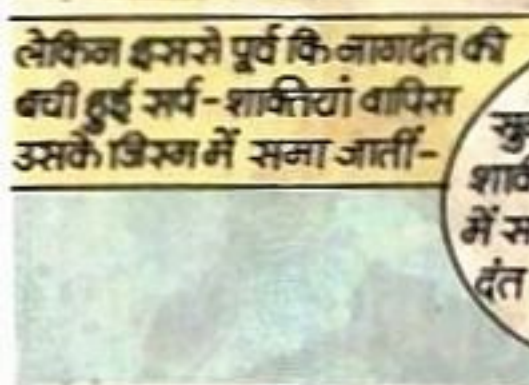 लेकिन इससे पूर्व कि नागदंत की
बची हुई सर्प-शक्तियां वापिस
उसके जिस्म में समा जातीं-
में
दंत